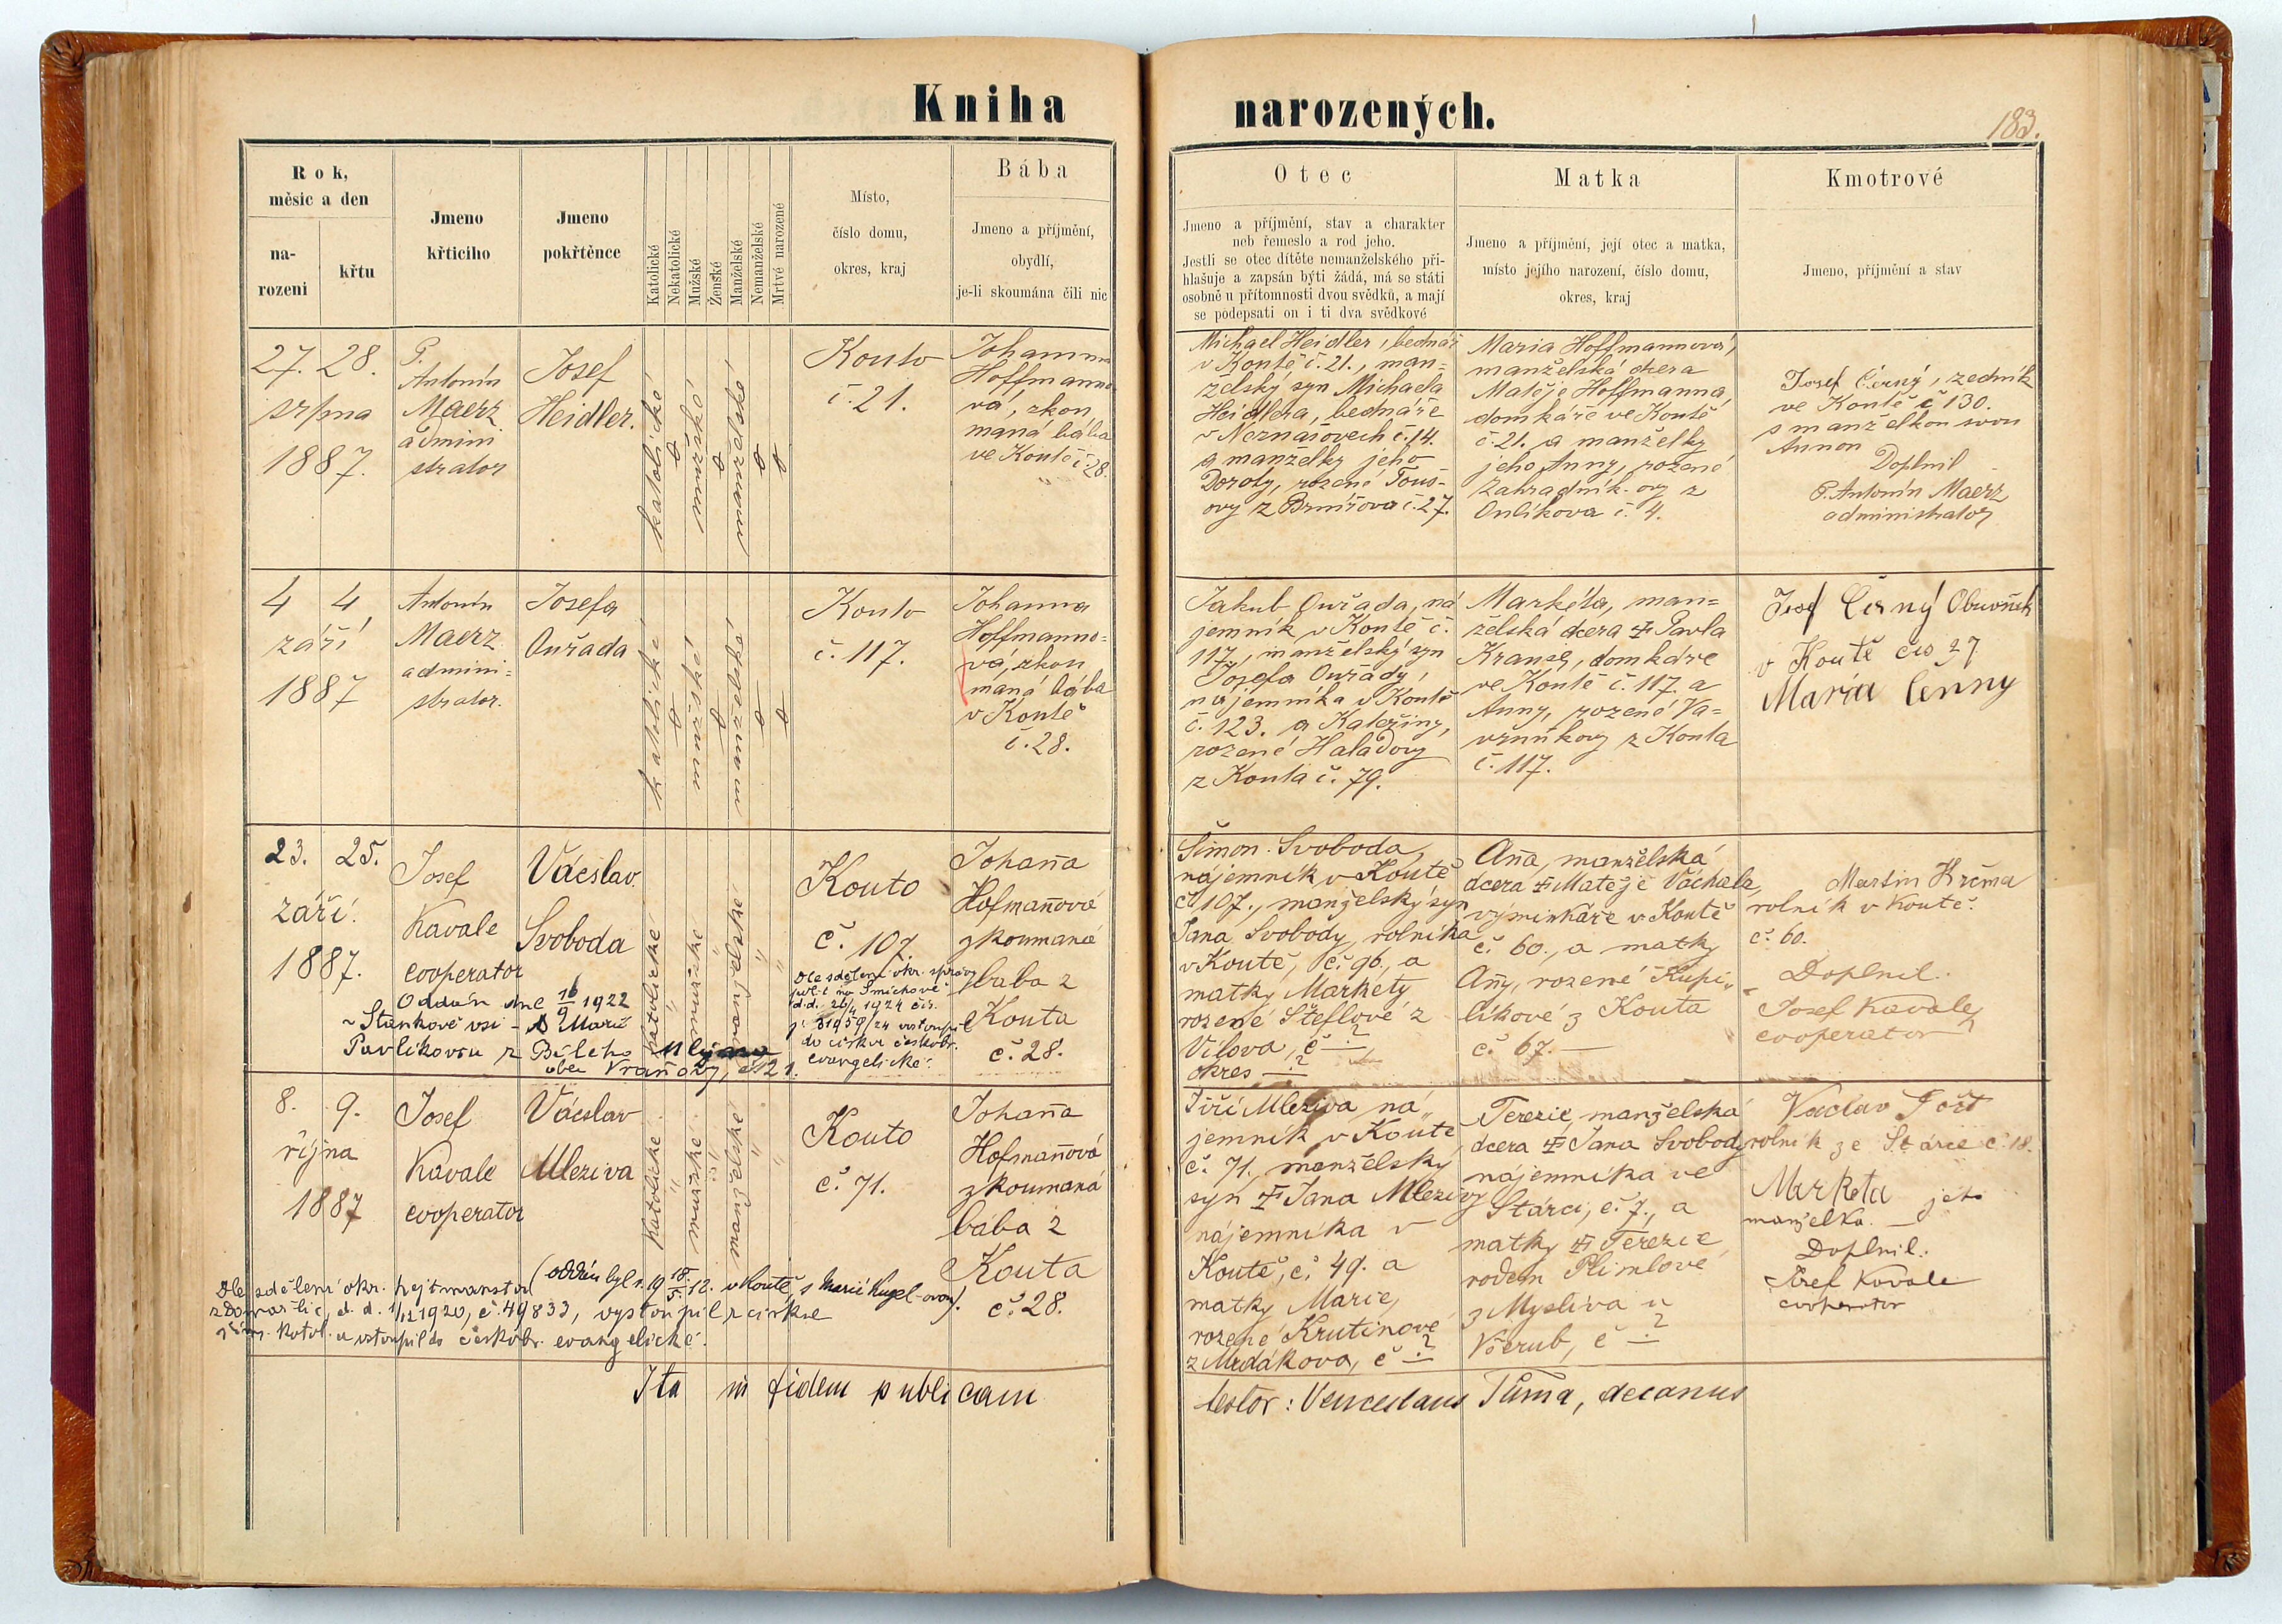 Kniha narozených.
183.
Rok,
měsíc a den
na-
rozeni
křtu
Jmeno
křticího
Jmeno
pokřtěnce
Katolické
Nekatolické
Mužské
Ženské
Manželské
Nemanželské
Mrtvé narozené
Místo,
číslo domu,
okres, kraj
Bába
Jmeno a příjmění,
obydlí,
je-li skoumána čili nic
Otec
Jmeno a příjmění, stav a charakter
neb řemeslo a rod jeho.
Jestli se otec dítěte nemanželského při-
hlašuje a zapsán býti žádá, má se státi
osobně u přítomnosti dvou svědků, a mají
se podepsati on i ti dva svědkové
Matka
Jmeno a příjmění, její otec a matka,
místo jejího narození, číslo domu,
okres, kraj
Kmotrové
Jmeno, příjmění a stav
27. 28.
srpna
1887.
P.
Antonín
Maerz
admini
strator
Josef
Heidler.
katolické
mužské
manželské
Kouto
č. 21.
Johanna
Hoffmanno
vá, zkou
maná bába
ve Koutě č. 28.
Michael Heidler, bednář
v Koutě č. 21., man=
želský syn Michaela
Heidlera, bednáře
v Neznašovech č. 14.
a manželky jeho
Doroty, rozené Touš-
ovy z Brnířova č. 27.
Maria Hoffmannová,
manželská dcera
Matěje Hoffmanna,
domkáře ve Koutě
č. 21. a manželky
jeho Anny, rozené
Zahradník-ovy z
Onlíkova č. 4.
Josef Černý, zedník
ve Koutě č 130.
s manželkou svou
Annou
Doplnil
P. Antonín Maerz
administrator
4 4
září
1887
Antonín
Maerz
admini=
strator.
Josefa
Ouřada
katolické
mužské
manželské
Kouto
č. 117.
Johanna
Hoffmanno=
vá, zkou
maná bába
v Koutě
č. 28.
Jakub Ouřada, ná
jemník v Koutě č.
117, manželský syn
Josefa Ouřady,
nájemníka v Koutě
č. 123. a Kateřiny,
rozené Haladovy
z Kouta č. 79.
Markéta, man=
želská dcera Pavla
Krause, domkáře
ve Koutě č. 117. a
Anny, rozené Va=
vřínkovy z Kouta
č. 117.
Josef Černý Obuvník
v Koutě čis 27
Maria Černy
23. 25.
září.
1887.
Josef
Kavale
cooperator
Vácslav
Svoboda
katolické
mužské
manželské
Kouto
č. 107.
Johana
Hofmanová
zkoumaná
baba z
Kouta
č. 28.
Oddán dne 16/9 1922
v Staňkově vsi s Marií
Pavlíkovou z Bílého Mlýna
obec Vranovy, č. 21.
Dle sdělení okr. správy
polit. na Smíchově
d.d. 26/4 1924 čís.
31959/24 vstoupil
do církve českobr.
evangelické.
Šimon Svoboda,
nájemník v Koutě
č. 107., manželský syn
Jana Svobody, rolníka
v Koutě, č. 96., a
matky Markety
rozené Šteflové z
Vílova, č - ?
okres - ?
Ana, manželská
dcera Matěje Váchala,
výminkáře v Koutě
č. 60., a matky
Any, rozené Kupi„
líkové z Kouta
č. 67.
Martin Hrčma
rolník v Koutě.
č. 60.
Doplnil.
Josef Kavale,
cooperator
8. 9.
října
1887
Josef
Kavale
cooperator
Vácslav
Mleziva
katolické
mužské
manželské
Kouto
č. 71.
Johana
Hofmanová
zkoumaná
bába z
Kouta
č. 28.
(oddán byl r. 19 18/5. 12. v Koutě, s Marií Kugel-ovou).
Dle sdělení okr. hejtmanství
z Domažlic, d. d. 1/12 1920, č. 49833, vystoupil z církve
řím. katol. a vstoupil do českobr. evangelické.
Jiří Mleziva ná„
jemník v Koutě
č. 71, manželský
syn Jana Mlezivy
nájemníka v
Koutě, č. 49. a
matky Marie,
rozené Krutinové
z Mrdákova, č - ?
Terezie, manželská
dcera Jana Svobody
nájemníka ve
Stárci, č. 7., a
matky Terezie
rodem Plimlové
z Myslíva u
Všerub, č - ?
Václav Fošt
rolník ze Stárce č. 18.
Marketa jeho
manželka.
Doplnil.
Josef Kavale
cooperator
Ita in fidem publicam
testor: Venceslaus Tůma, decanus